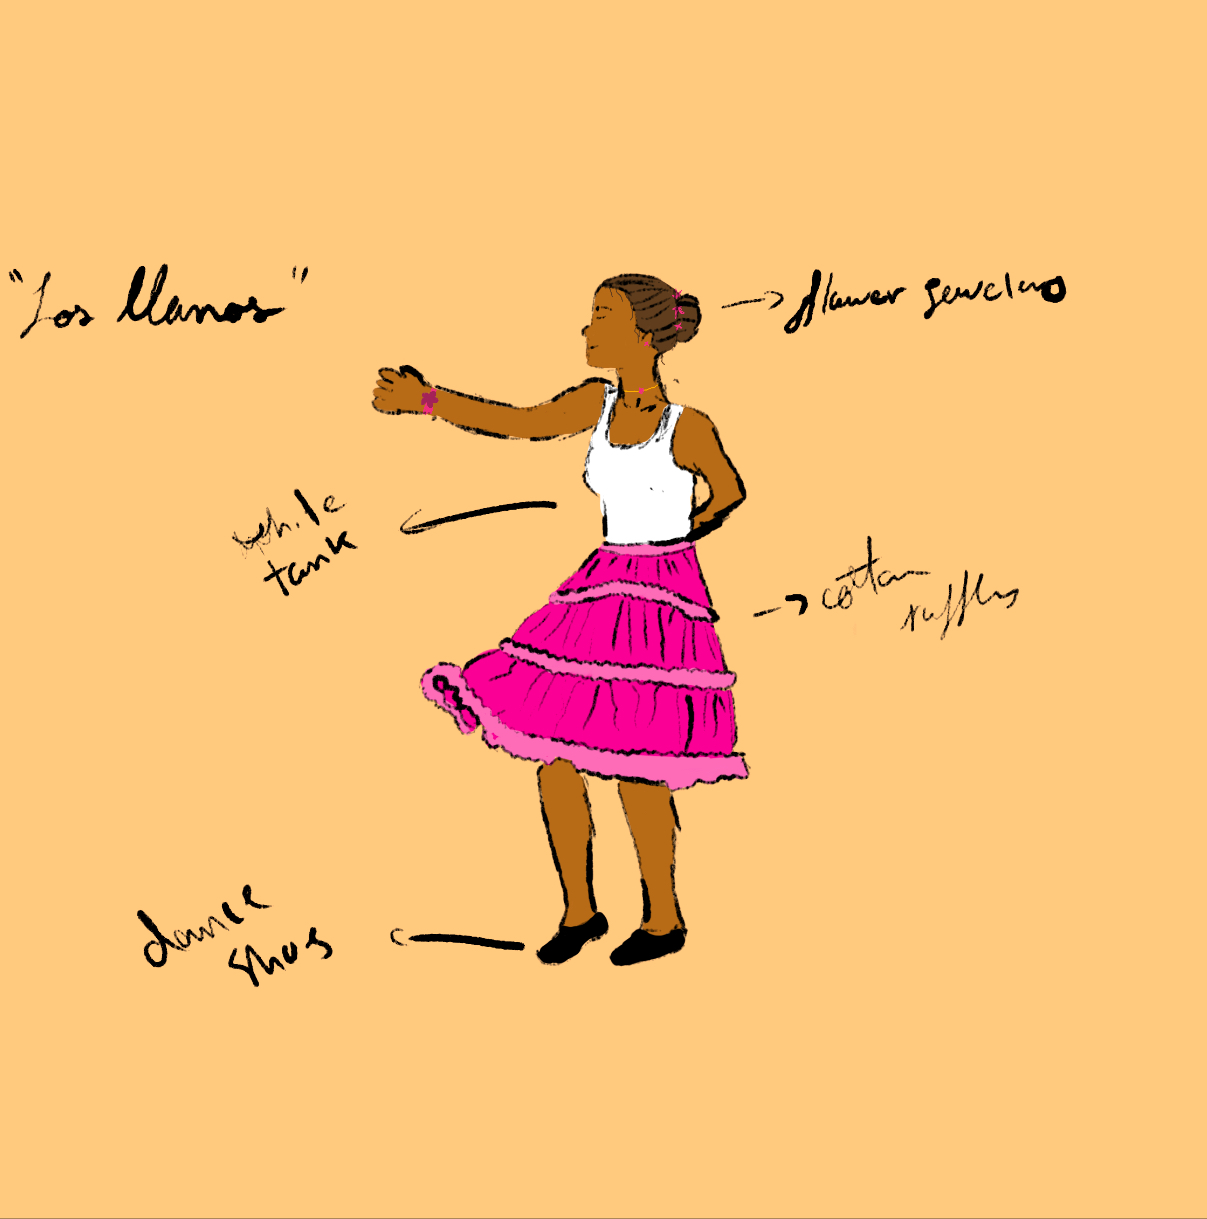 "Los llanos"
flower jewelry
white
tank
cotton
ruffles
dance
shoes